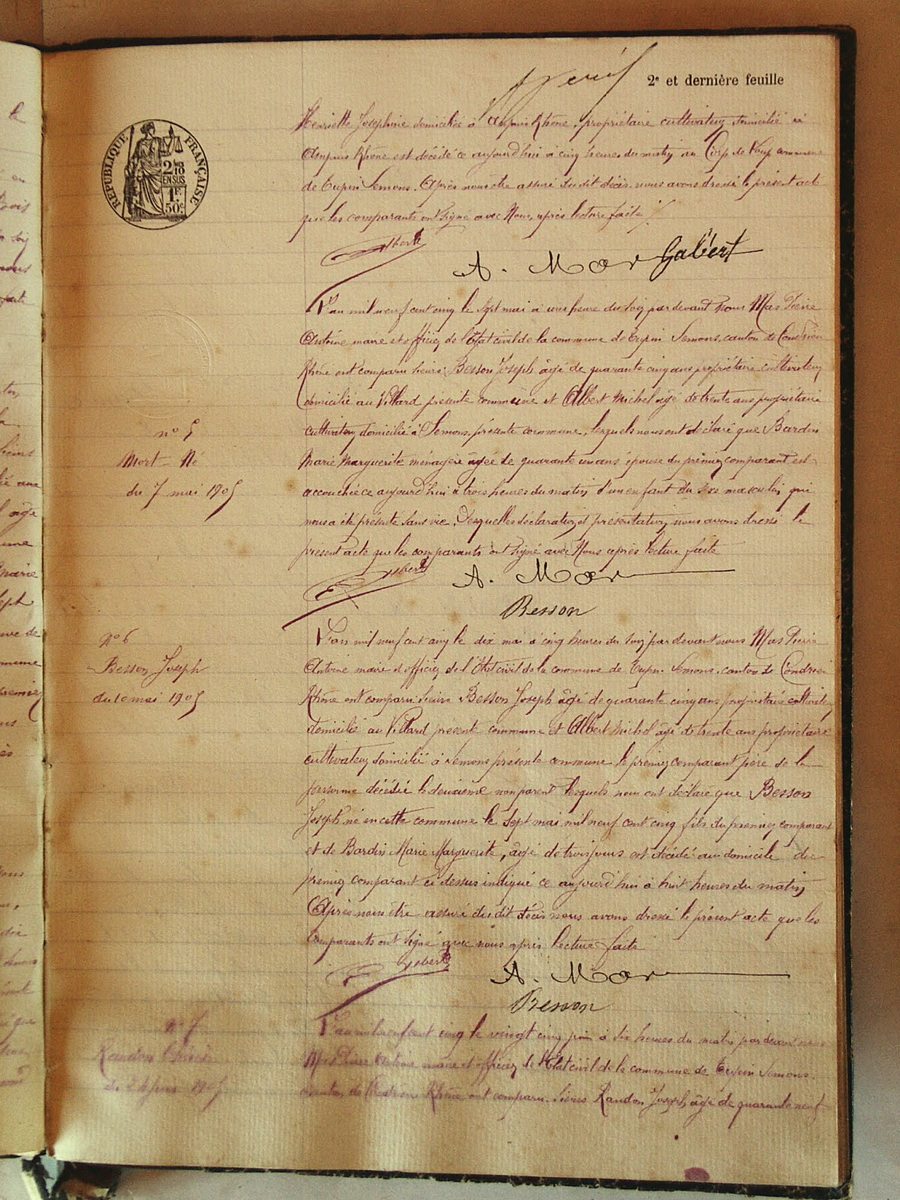 2e et dernière feuille
RÉPUBLIQUE FRANÇAISE
2/10
EN SUS
1F
50c
Henriette Josephine domiciliée à Ampuis Rhône, propriétaire cultivateur domicilié à
Ampuis Rhône est décédé ce aujourd'hui à cinq heures du matin au commune
de Tupin Semons. Après nous être assuré du dit décès nous avons dressé le présent act
que les comparants ont signé avec Nous, après lecture faite
Albert
A. Mas Gabert
L'an mil neuf cent cinq le sept mai à une heure du soir par devant Nous Mas Pierre
Antoine maire et officier de l'Etat civil de la commune de Tupin Semons, canton de Condrieu
Rhône ont comparu sieurs Besson Joseph âgé de quarante cinq ans propriétaire cultivateur
domicilié au Villard présente commune et Albert Michel âgé de trente ans propriétaire
cultivateur domicilié à Semons, présente commune, lesquels nous ont déclaré que Bardin
Marie Marguerite ménagère âgée de quarante un ans épouse du premier comparant est
accouchée ce aujourd'hui à trois heures du matin d'un enfant du sexe masculin, qui
nous a été présenté sans vie. Desquelles déclaration et présentation, nous avons dressé le
présent acte que les comparants ont signé avec Nous après lecture faite
no 5
Mort-Né
du 7 mai 1905
Albert
A. Mas
Besson
No 6
Besson Joseph
du 10 mai 1905
L'an mil neuf cent cinq le dix mai à cinq heures du soir par devant nous Mas Pierre
Antoine maire et officier de l'Etat civil de la commune de Tupin Semons, canton de Condrieu
Rhône ont comparu sieurs Besson Joseph âgé de quarante cinq ans propriétaire
domicilié au Villard présent commune et Albert Michel âgé de trente ans propriétaire
cultivateur domicilié à Semons présente commune le premier comparant père de la
personne décédé le deuxième non parent lesquels nous ont déclaré que Besson
Joseph né en cette commune le sept mai mil neuf cent cinq fils du premier comparant
et de Bardin Marie Marguerite, âgé de trois jours est décédé au domicile du
premier comparant ci dessus indiqué ce aujourd'hui à huit heures du matin,
Après nous être assuré du dit décès nous avons dressé le présent acte que les
comparants ont signé avec nous après lecture faite
Albert
A. Mas
Besson
No 7
Randon
du 24 juin 1905
L'an mil neuf cent cinq le vingt cinq juin à dix heures du matin par devant nous
Mas Pierre Antoine maire et officier de l'Etat civil de la commune de Tupin Semons
canton de Condrieu Rhône ont comparu. Sieurs Randon Joseph âgé de quarante neuf